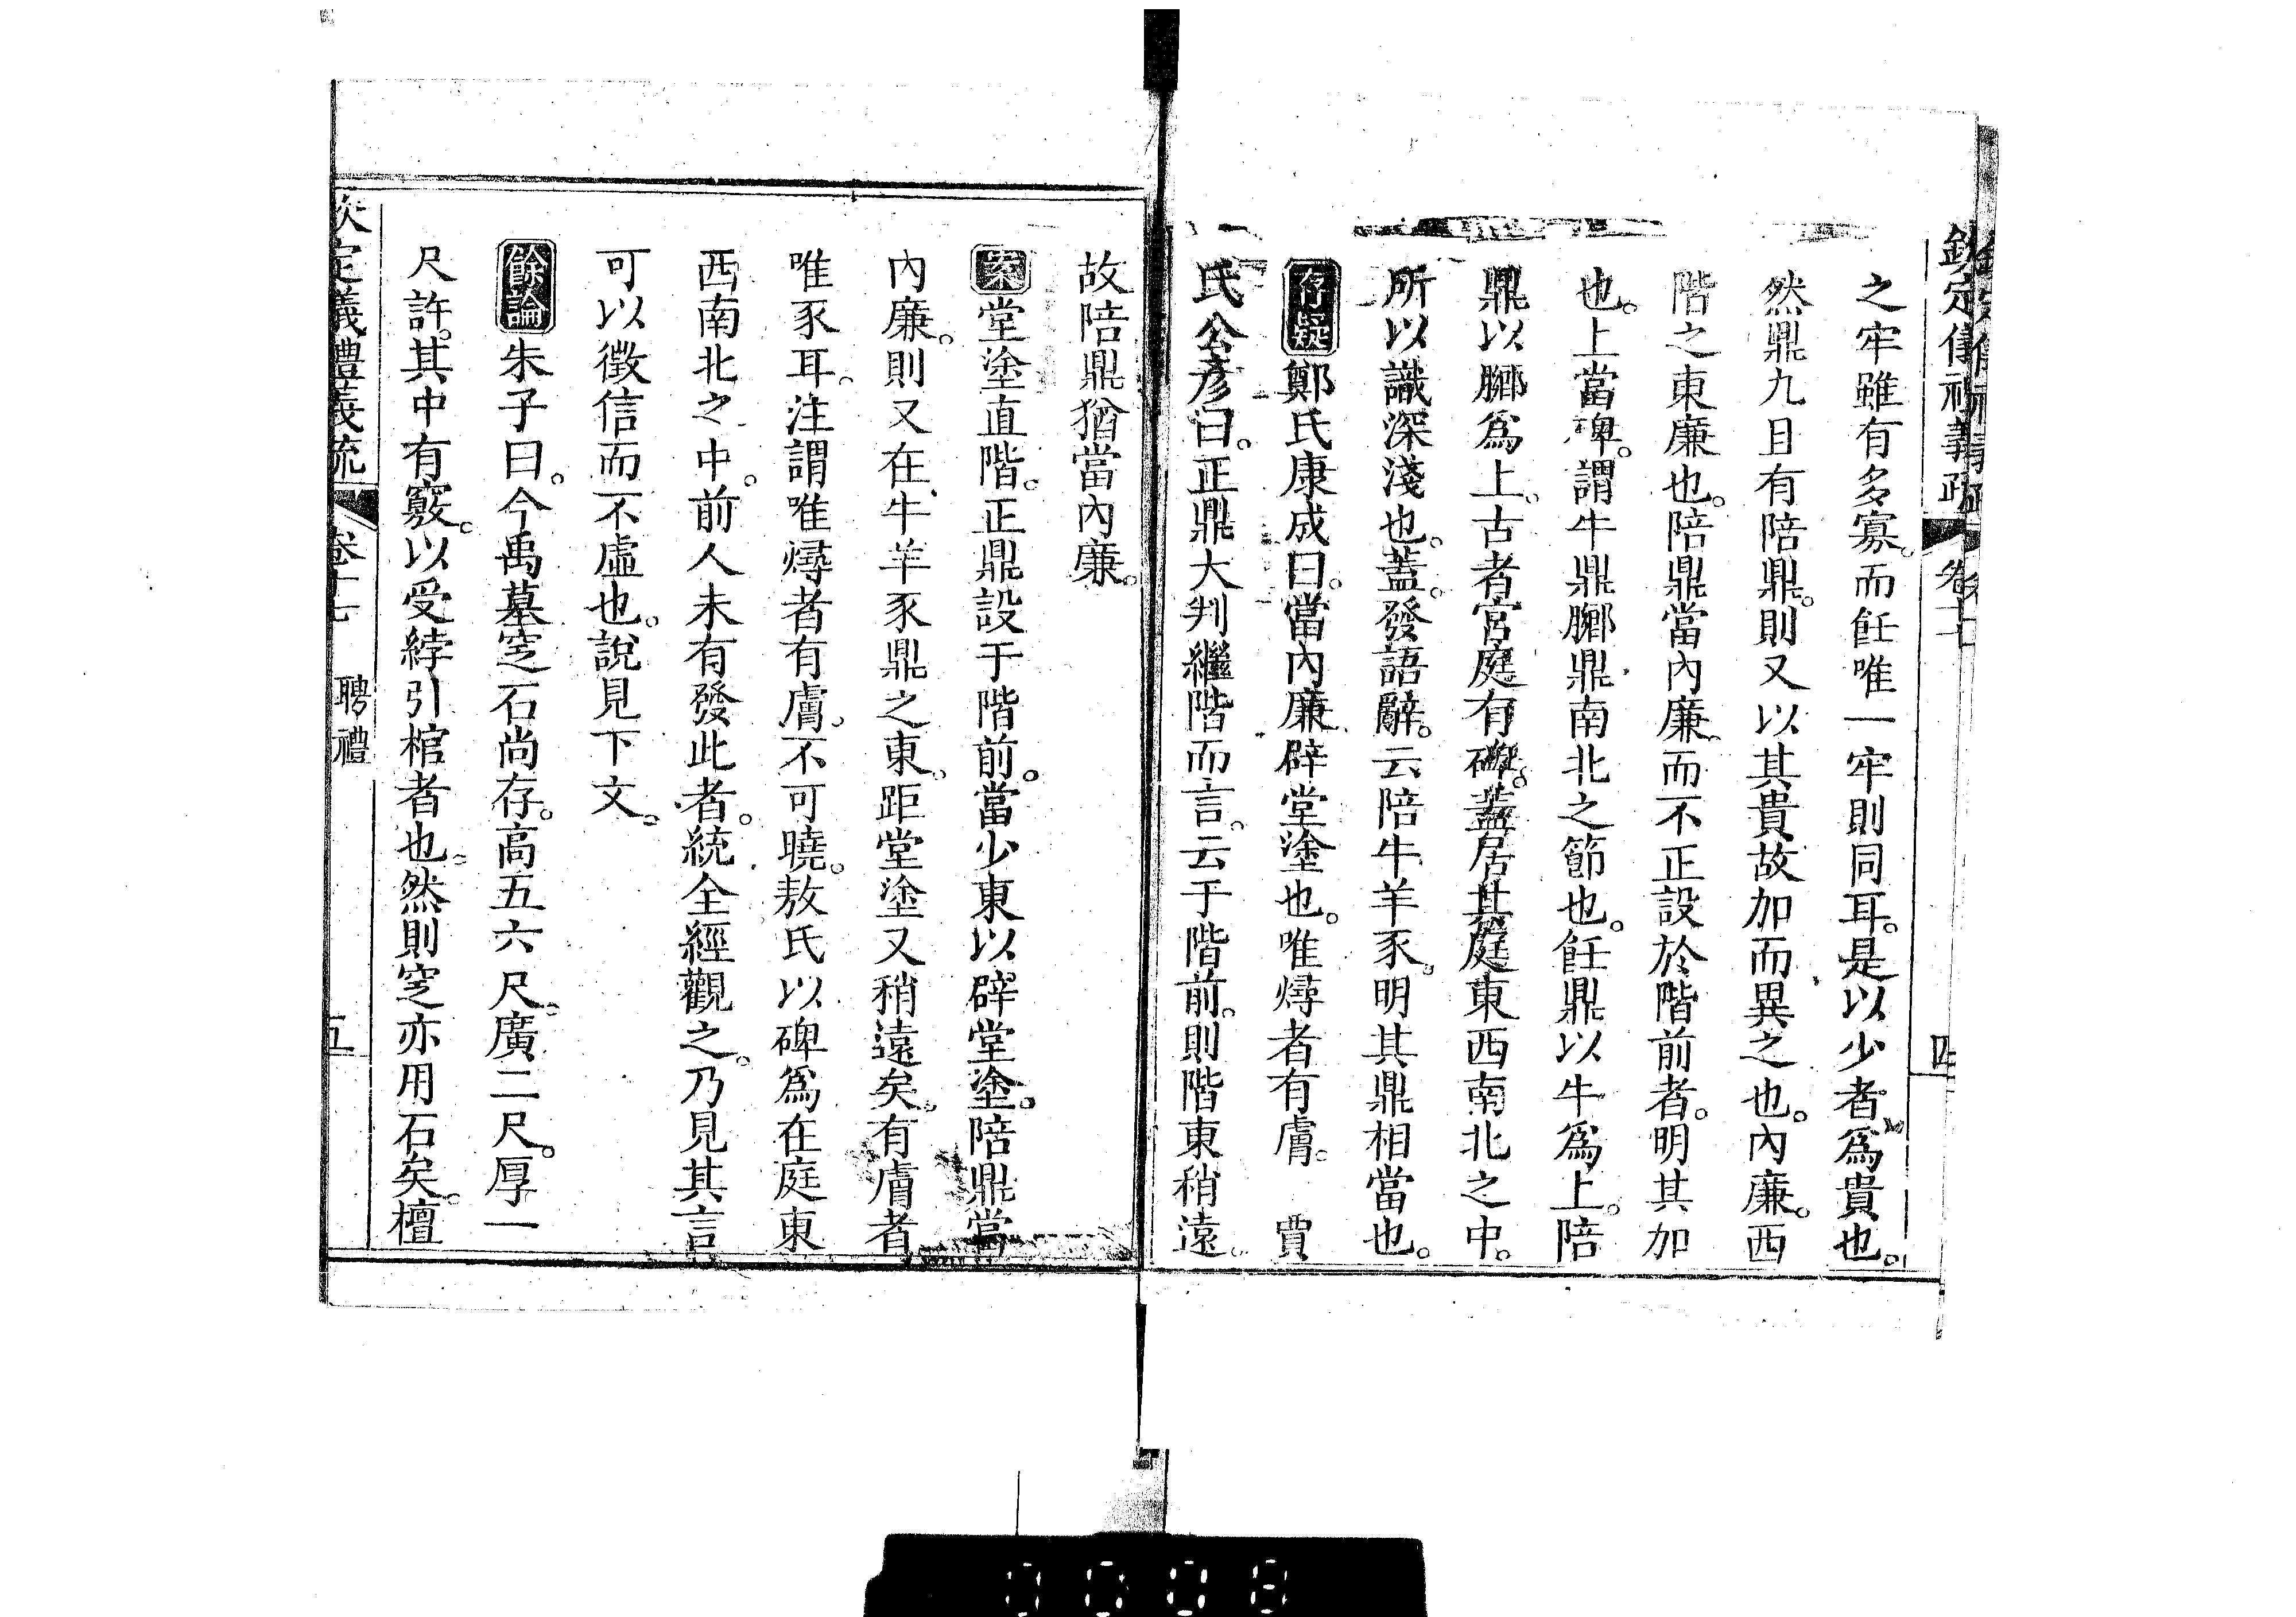 欽定儀禮義疏 卷十七 四
之牢雖有多寡。而飪唯一牢則同耳。是以少者爲貴也。
然鼎九且有陪鼎。則又以其貴故加而異之也。內廉。西
階之東廉也。陪鼎當內廉。而不正設於階前者。明其加
也。上當碑。謂牛鼎膷鼎。南北之節也。飪鼎以牛爲上。陪
鼎以膷爲上。古者宮庭有碑。蓋居其庭東西南北之中。
所以識深淺也。蓋。發語辭。云陪牛羊豕。明其鼎相當也。
存疑 鄭氏康成曰。當內廉。辟堂塗也。唯燖者有膚。 賈
氏公彥曰。正鼎大判繼階而言。云于階前。則階東稍遠。
故陪鼎猶當內廉。
案 堂塗直階。正鼎設于階前。當少東以辟堂塗。陪鼎當
內廉。則又在牛羊豕鼎之東。距堂塗又稍遠矣。有膚者
唯豕耳。注謂唯燖者有膚。不可曉。敖氏以碑爲在庭東
西南北之中。前人未有發此者。統全經觀之。乃見其言
可以徵信而不虛也。說見下文。
餘論 朱子曰。今禹墓窆石尚存。高五六尺。廣二尺。厚一
尺許。其中有竅。以受綍引棺者也。然則窆亦用石矣。檀
欽定儀禮義疏 卷十七 聘禮 五